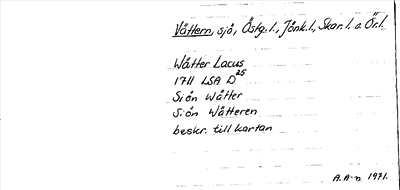 Vättern, sjö, Östg. l., Jönk. l., Skar. l. o Ör. l.
Wätter Lacus
1711 LSA D25
Siön Wätter
Siön Wätteren
beskr. till kartan
A.A-n. 1971.